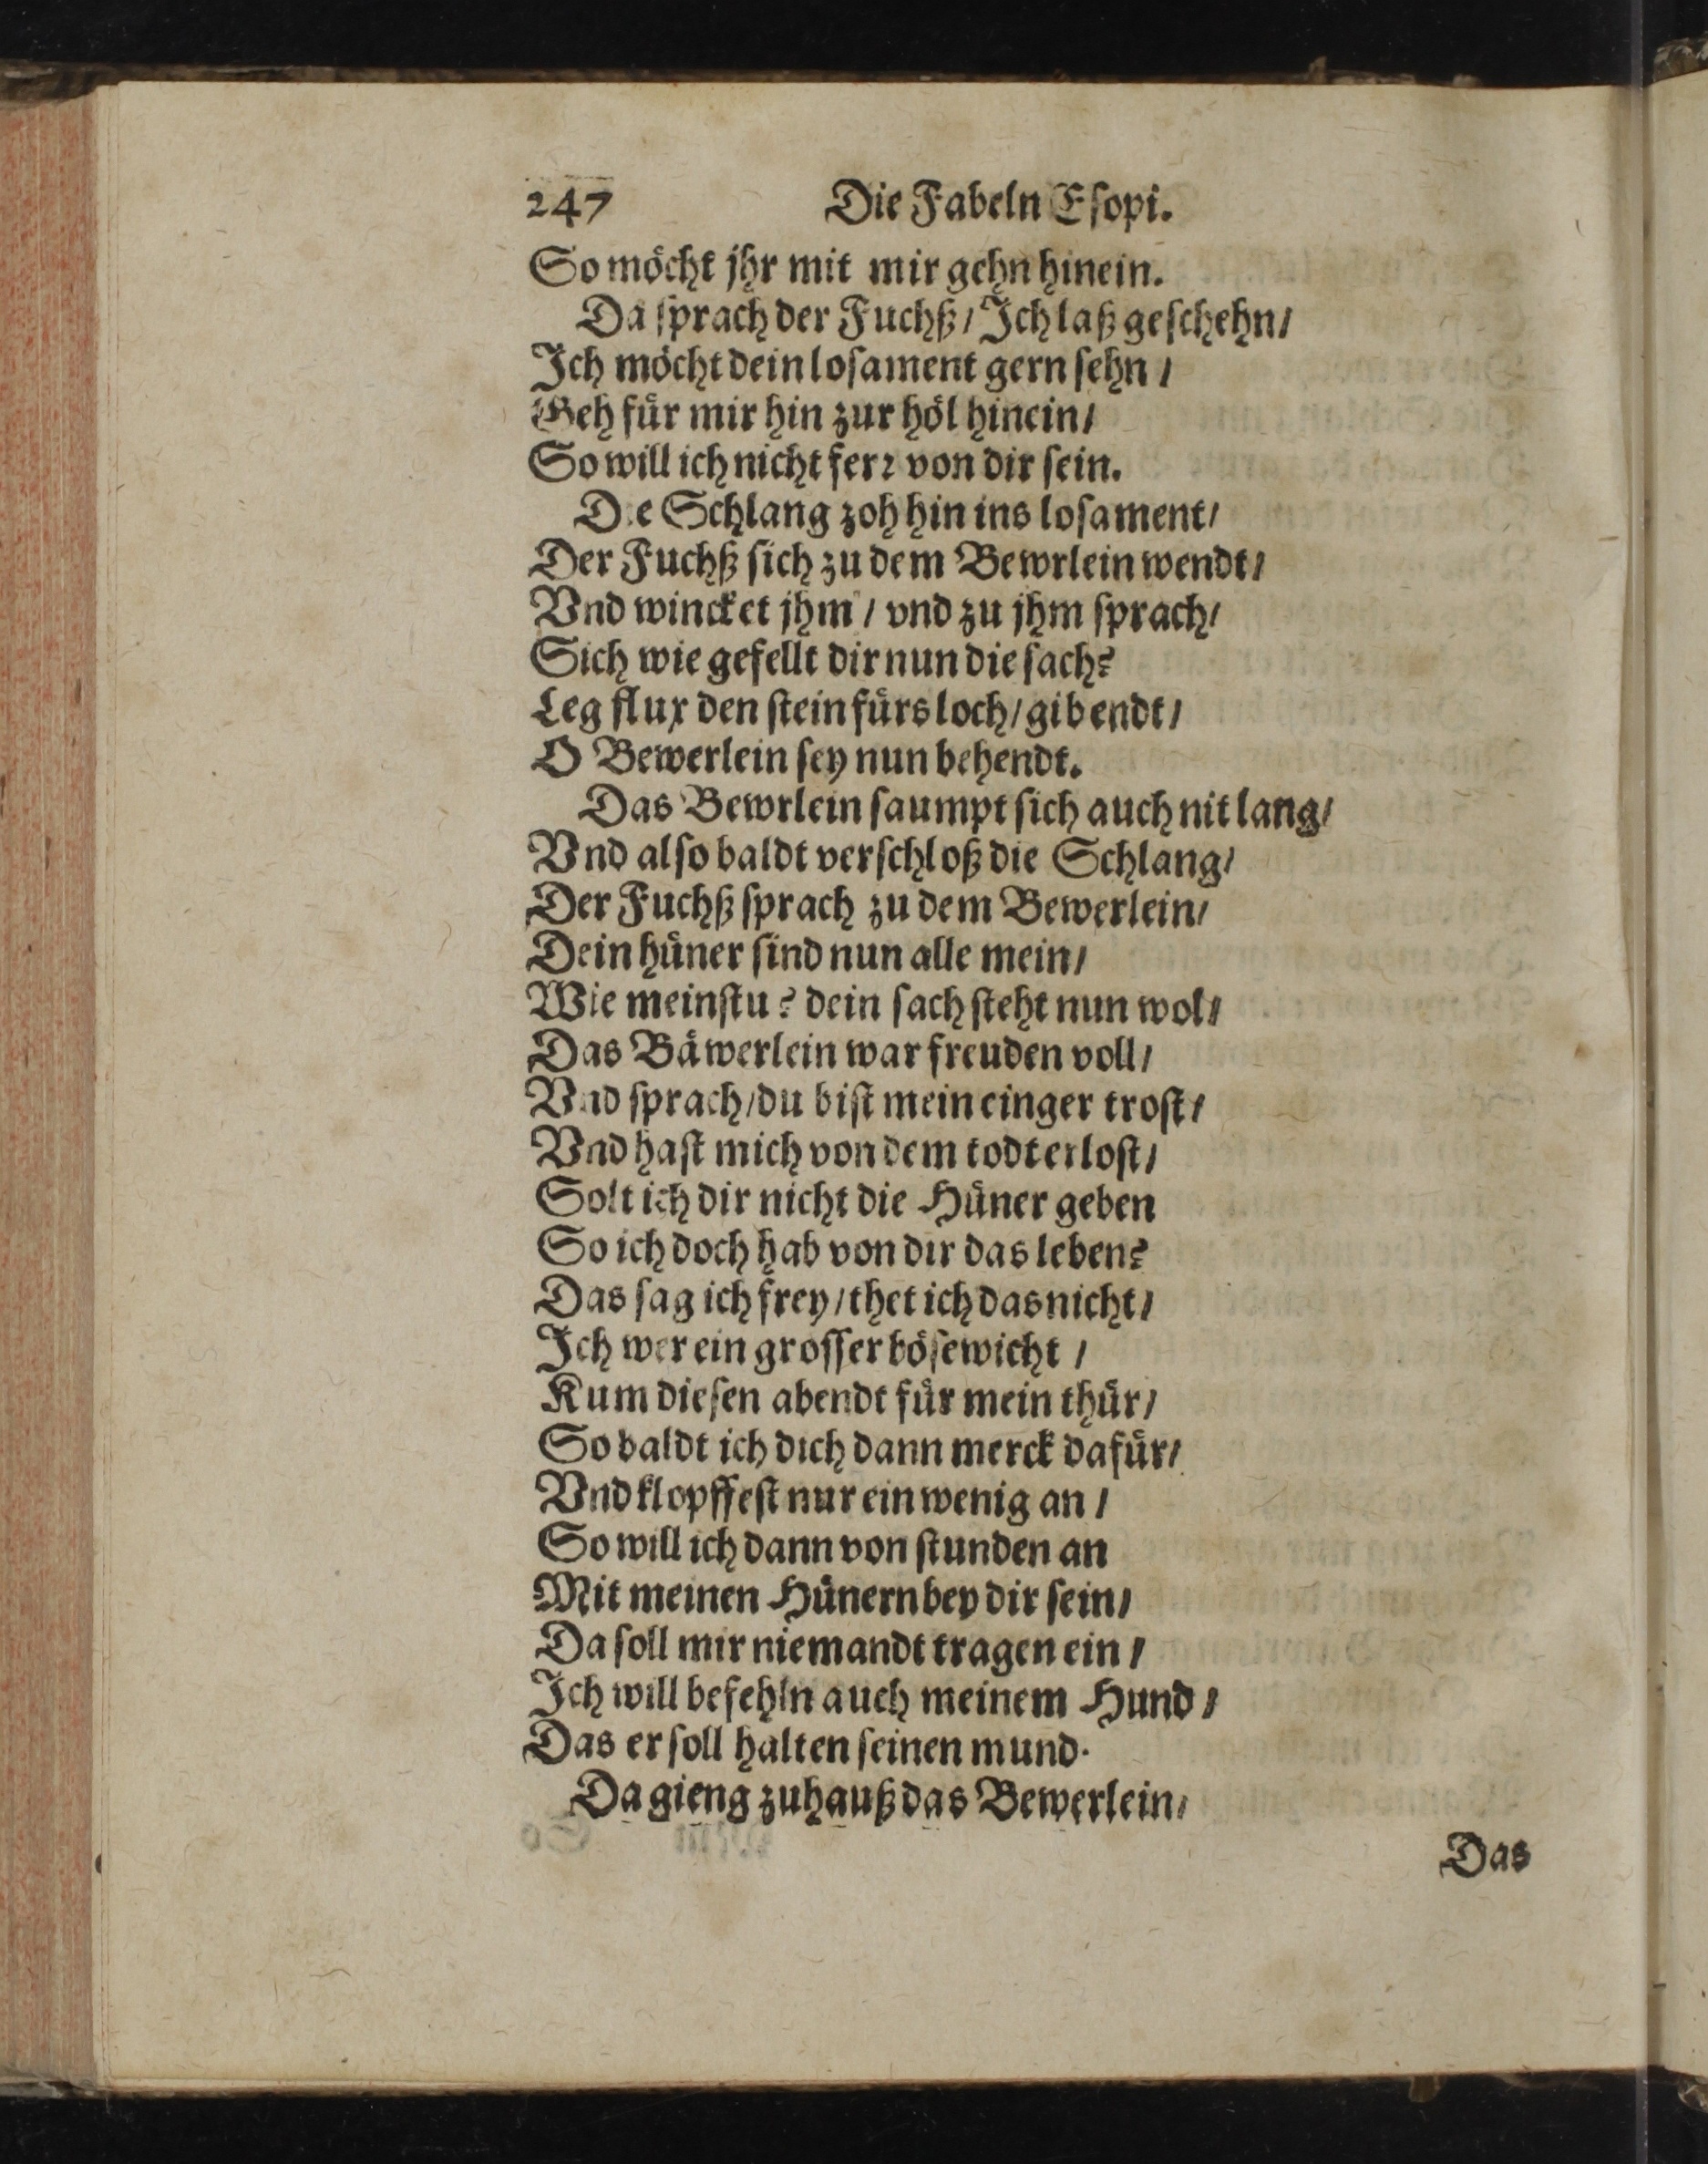 247 Die Fabeln Eſopi.
So möcht jhr mit mir gehn hinein.
Da ſprach der Fuchß / Ich laß geſchehn /
Ich möcht dein loſament gern ſehn /
Geh für mir hin zur höl hinein /
So will ich nicht ferꝛ von dir ſein.
Die Schlang zoh hin ins loſament /
Der Fuchß ſich zu dem Bewrlein wendt /
Vnd wincket jhm / vnd zu jhm ſprach /
Sich wie gefellt dir nun die ſach?
Leg flux den ſtein fürs loch / gib endt /
O Bewerlein ſey nun behendt.
Das Bewrlein ſaumpt ſich auch nit lang /
Vnd alſo baldt verſchloß die Schlang /
Der Fuchß ſprach zu dem Bewerlein /
Dein hüner ſind nun alle mein /
Wie meinſtu? dein ſach ſteht nun wol /
Das Bäwerlein war freuden voll /
Vnd ſprach / du biſt mein einger troſt /
Vnd haſt mich von dem todt erloſt /
Solt ich dir nicht die Hüner geben
So ich doch hab von dir das leben?
Das ſag ich frey / thet ich das nicht /
Ich wer ein groſſer böſewicht /
Kum dieſen abendt für mein thür /
So baldt ich dich dann merck dafür /
Vnd klopffeſt nur ein wenig an /
So will ich dann von ſtunden an
Mit meinen Hünern bey dir ſein /
Da ſoll mir niemandt tragen ein /
Ich will befehln auch meinem Hund /
Das er ſoll halten ſeinen mund.
Da gieng zuhauß das Bewerlein /
Das